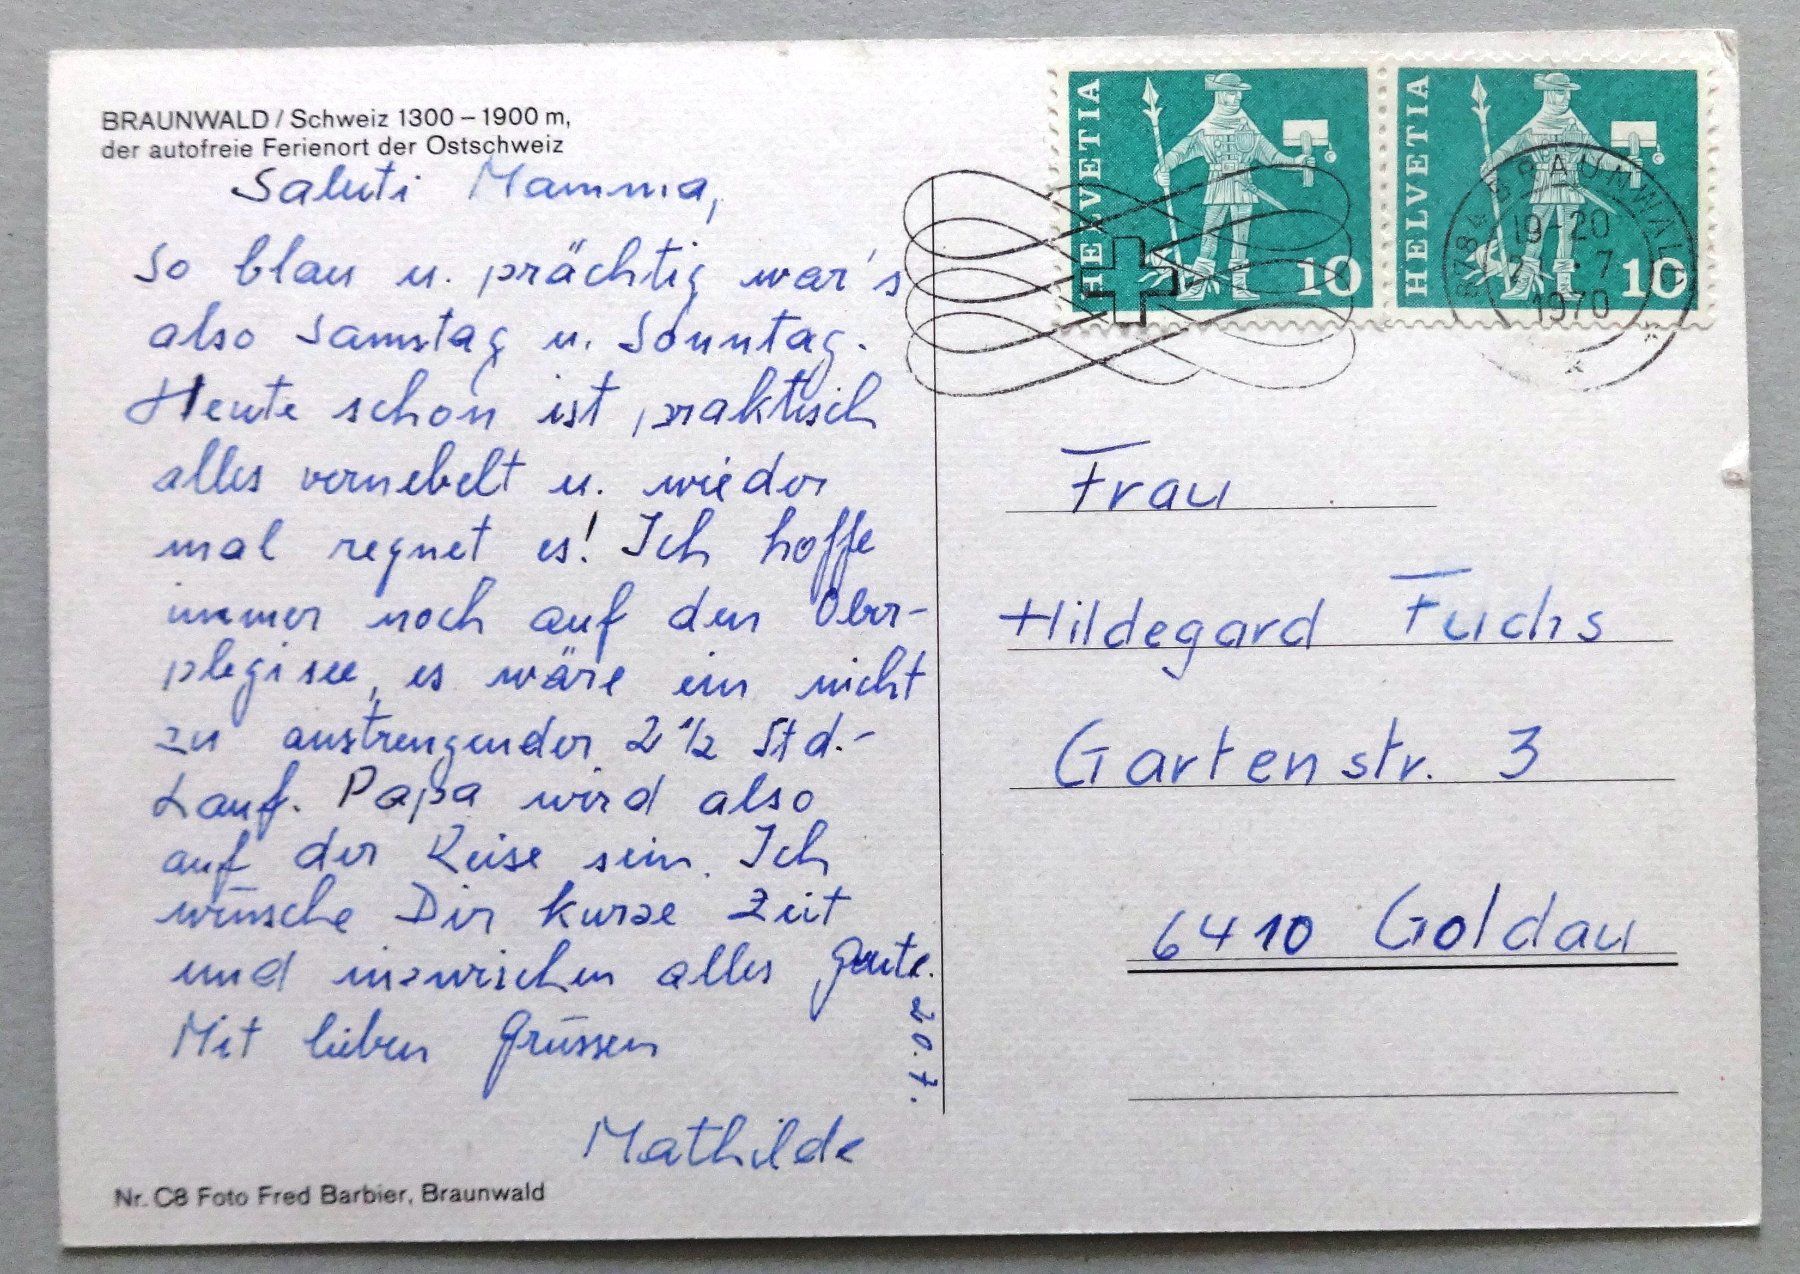 BRAUNWALD / Schweiz 1300 – 1900 m,
der autofreie Ferienort der Ostschweiz
Saluti Mamma,
So blau u. prächtig war's
also Samstag u. Sonntag.
Heute schon ist praktisch
alles vernebelt u. wieder
mal regnet es! Ich hoffe
immer noch auf den Ober-
plegisee, es wäre ein nicht
zu anstrengender 2 1/2 Std.-
Lauf. Papa wird also
auf der Reise sein. Ich
wünsche Dir kurze Zeit
und inzwischen alles Gute.
Mit lieben Grüssen
Mathilde
20.7.
Nr. C8 Foto Fred Barbier, Braunwald
HELVETIA
10
HELVETIA
10
8784 BRAUNWALD
19-20
7
1970
Frau
Hildegard Fuchs
Gartenstr. 3
6410 Goldau